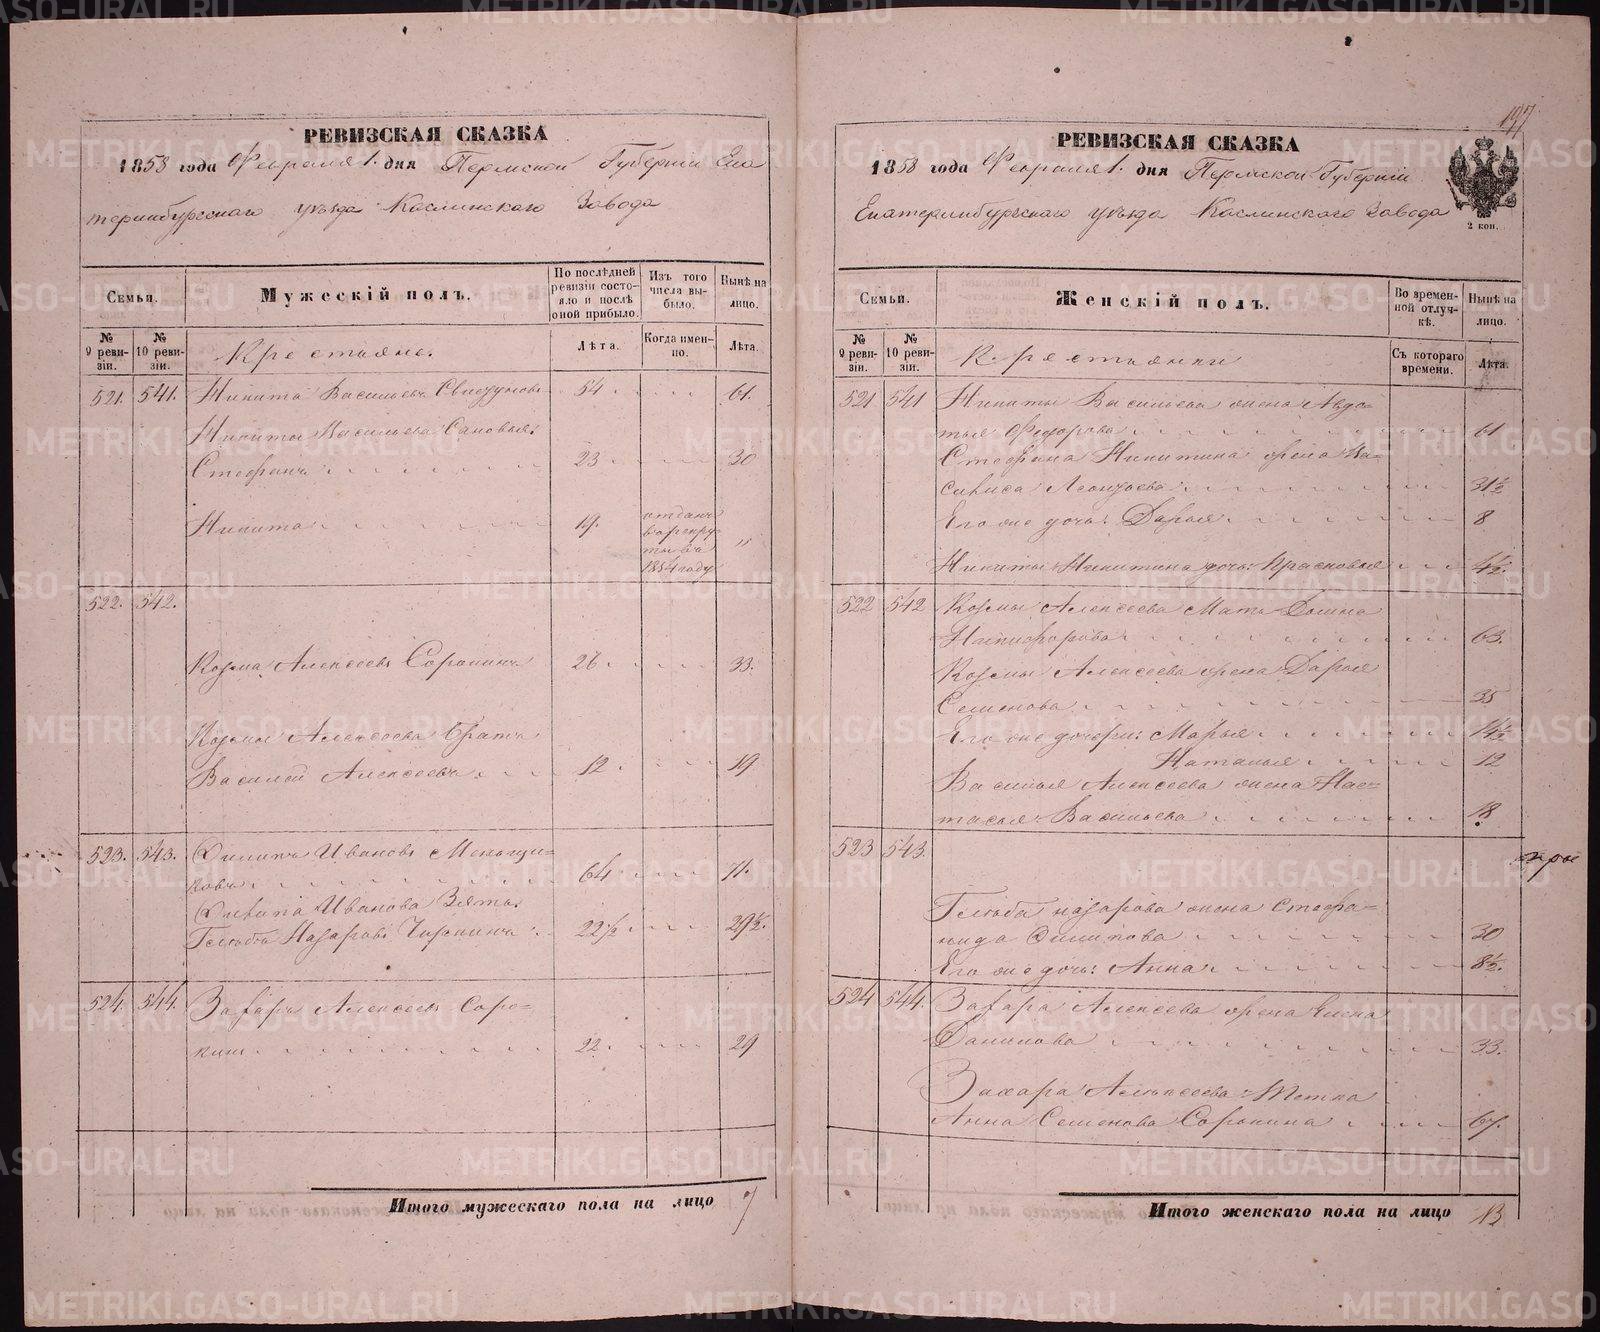 РЕВИЗСКАЯ СКАЗКА
1858 года Февраля 1. дня Пермской Губерніи Ека
теринбургскаго уѣзда Каслинскаго Завода
Семьи.
Мужескій полъ.
По послѣдней ревизіи состояло и послѣ оной прибыло.
Изъ того числа выбыло.
Нынѣ на лицо.
№ 9 ревизіи.
№ 10 ревизіи.
Крестьяне.
Лѣта.
Когда именно.
Лѣта.
521. 541. Никита Васильевъ 54 61.
Никиты Васильева Сыновья:
Стефанъ 23 30
Никита 19. отданъ в рекруты въ 1854 году "
522. 542.
Козма Алексеевъ Сорокинъ 26 33.
Козмы Алексеева братъ
Василей Алексеевъ 12 19
523. 543. Филипъ Ивановъ Меньщи-
ковъ 64 71.
Филипа Иванова Зять
Глебъ Назаровъ 22½ 29½.
524. 544. Захаръ Алексеевъ Соро-
кинъ 22 29
Итого мужескаго пола на лицо 7
197
РЕВИЗСКАЯ СКАЗКА
1858 года Февраля 1. дня Пермской Губерніи
Екатеринбургскаго уѣзда Каслинскаго Завода
2 коп.
Семьи.
Женскій полъ.
Во временной отлучкѣ.
Нынѣ на лицо.
№ 9 ревизіи.
№ 10 ревизіи.
Крестьянки
Съ котораго времени.
Лѣта.
521 541 Никиты Васильева жена Авдо-
тья Федорова 61
Стефана Никитина жена Ва-
силиса Леонтьева 31½
Его же дочь: Дарья 8
Никиты Никитина дочь: Прасковья 4½.
522 542 Козмы Алексеева Мать Домна
Никифорова 63.
Козмы Алексеева жена Дарья
Семенова 35
Его же дочери: Марья 14½
Наталья 12
Василья Алексеева жена Нас-
тасья Васильева 18
523 543.
Глеба Назарова жена Стефа-
нида Филипова 30
Его же дочь: Анна 8½.
524 544. Захара Алексеева жена Елена
Данилова 33.
Захара Алексеева Тетка
Анна Семенова Сорокина 67.
Итого женскаго пола на лицо 13
METRIKI.GASO-URAL.RU